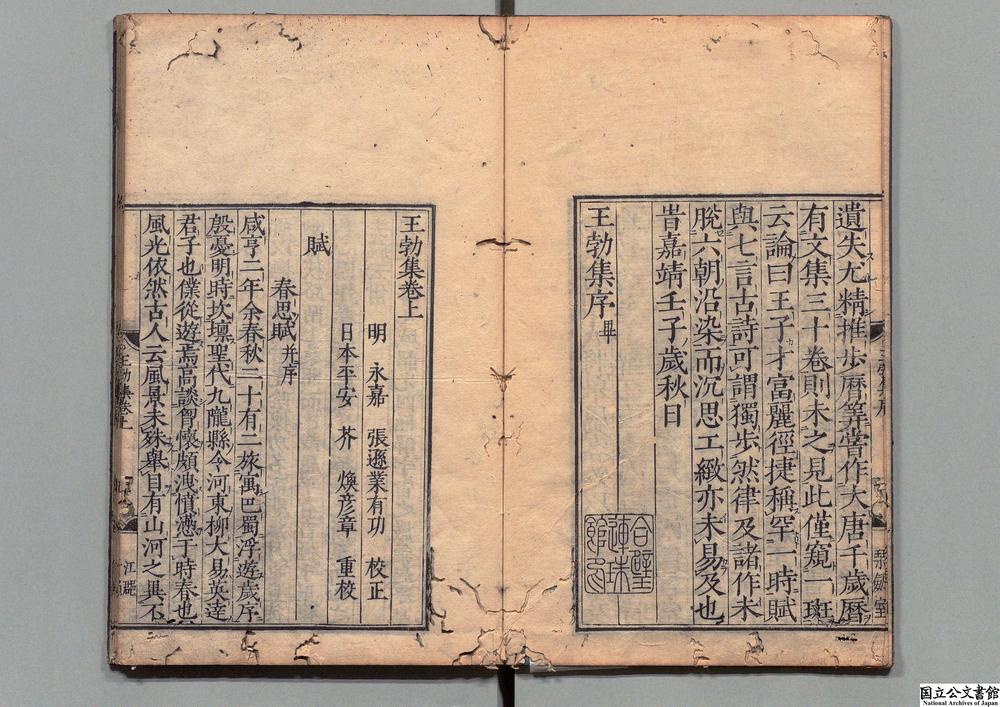 遺失尤精推步曆筭嘗作大唐千歲曆
有文集三十卷則未之見此僅窺一斑
云論曰王子才富麗徑捷稱罕一時賦
與七言古詩可謂獨步然律及諸作未
脫六朝沿染而沉思工緻亦未易及也
昔嘉靖壬子歲秋日
王勃集序 畢
王勃集卷上
明 永嘉 張遜業有功 校正
日本平安 芥 煥彥章 重校
賦
春思賦 并序
咸亨二年余春秋二十有二旅寓巴蜀浮遊歲序
殷憂明時坎壈聖代九隴縣令河東柳大易英達
君子也僕從遊焉高談胷懷頗洩憤懣于時春也
風光依然古人云風景未殊舉目有山河之異不
国立公文書館
National Archives of Japan